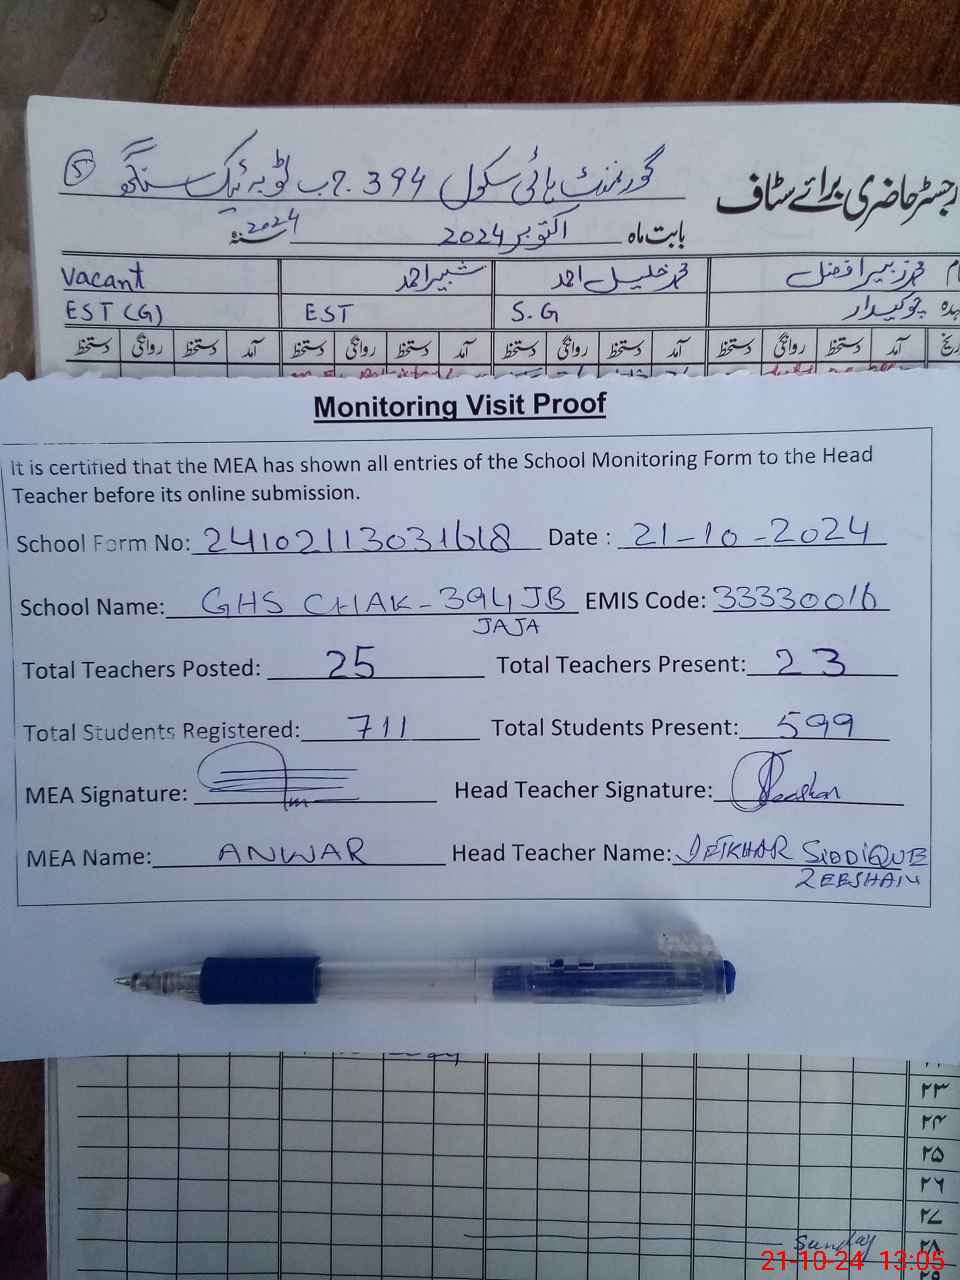 رجسٹر حاضری برائے سٹاف گورنمنٹ ہائی سکول 394 ج ب ٹوبہ ٹیک سنگھ 5
بابت ماہ اکتوبر 2024 سنہ 2024
محمد زبیر افضل محمد خلیل احمد شبیر احمد Vacant
چوکیدار S.G EST EST (G)
آمد دستخط روانگی دستخط آمد دستخط روانگی دستخط آمد دستخط روانگی دستخط آمد دستخط روانگی دستخط
Monitoring Visit Proof
It is certified that the MEA has shown all entries of the School Monitoring Form to the Head
Teacher before its online submission.
School Form No: 24102113031618 Date : 21-10-2024
School Name: GHS CHAK-394 JB EMIS Code: 33330016
JAJA
Total Teachers Posted: 25 Total Teachers Present: 23
Total Students Registered: 711 Total Students Present: 599
MEA Signature: Head Teacher Signature: Zeeshan
MEA Name: ANWAR Head Teacher Name: IFTKHAR SIDDIQUE
ZEESHAN
۲۳
۲۴
۲۵
۲۶
۲۷
Sunday ۲۸
21-10-24 13:05
۲۹